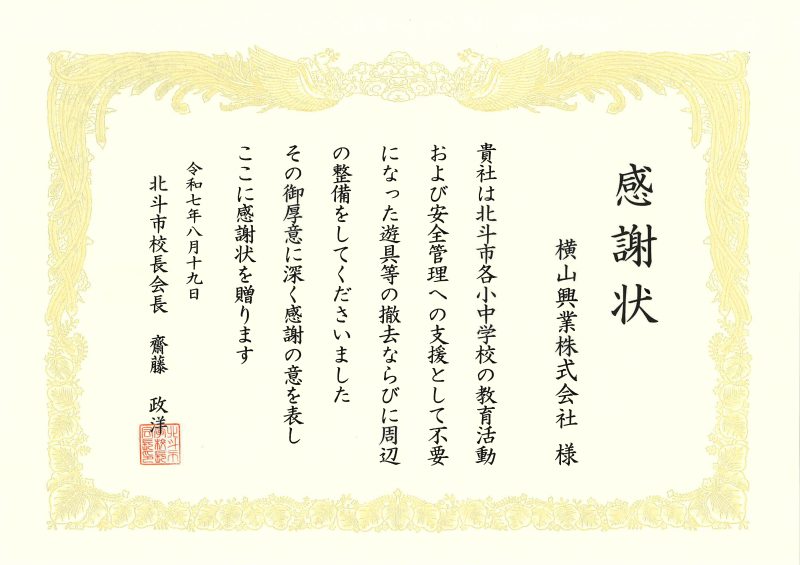 感謝状
横山興業株式会社 様
貴社は北斗市各小中学校の教育活動
および安全管理への支援として不要
になった遊具等の撤去ならびに周辺
の整備をしてくださいました
その御厚意に深く感謝の意を表し
ここに感謝状を贈ります
令和七年八月十九日
北斗市校長会長 齋藤 政洋